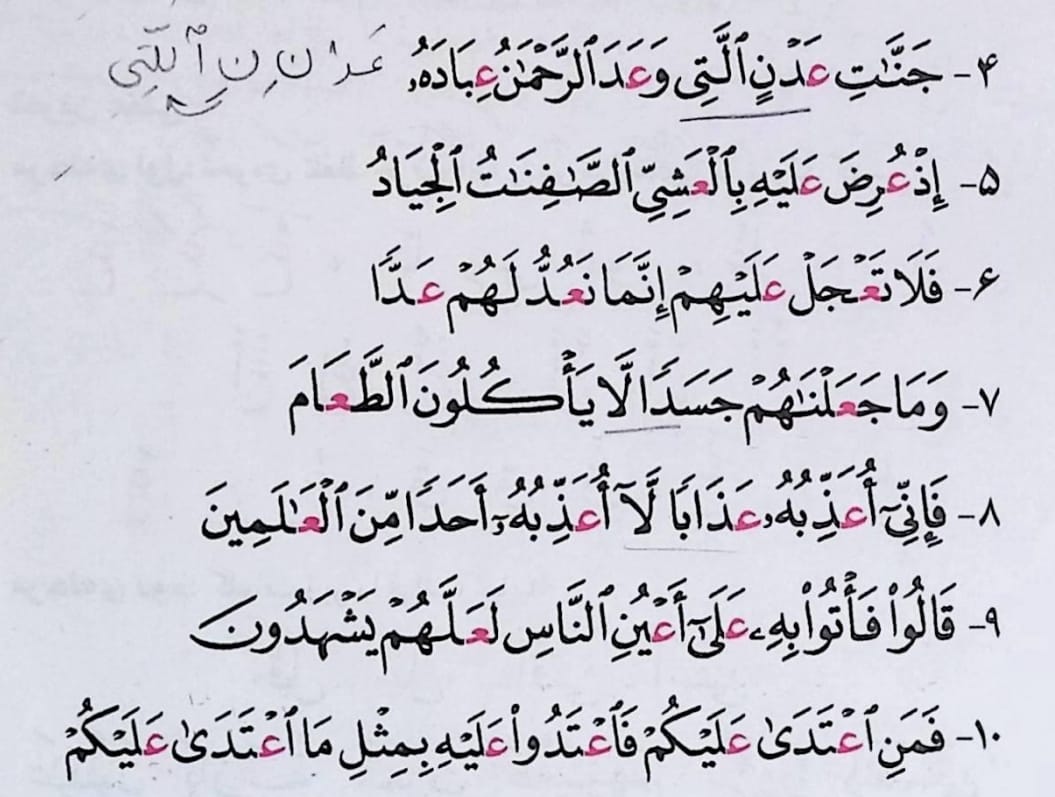 ۴- جَنَّـٰتِ عَدْنٍ ٱلَّتِى وَعَدَ ٱلرَّحْمَـٰنُ عِبَادَهُۥ
۵- إِذْ عُرِضَ عَلَيْهِ بِٱلْعَشِىِّ ٱلصَّـٰفِنَـٰتُ ٱلْجِيَادُ
۶- فَلَا تَعْجَلْ عَلَيْهِمْ إِنَّمَا نَعُدُّ لَهُمْ عَدًّا
۷- وَمَا جَعَلْنَـٰهُمْ جَسَدًا لَّا يَأْكُلُونَ ٱلطَّعَامَ
۸- فَإِنِّىٓ أُعَذِّبُهُۥ عَذَابًا لَّآ أُعَذِّبُهُۥٓ أَحَدًا مِّنَ ٱلْعَـٰلَمِينَ
۹- قَالُوا۟ فَأْتُوا۟ بِهِۦ عَلَىٰٓ أَعْيُنِ ٱلنَّاسِ لَعَلَّهُمْ يَشْهَدُونَ
۱۰- فَمَنِ ٱعْتَدَىٰ عَلَيْكُمْ فَٱعْتَدُوا۟ عَلَيْهِ بِمِثْلِ مَا ٱعْتَدَىٰ عَلَيْكُمْ